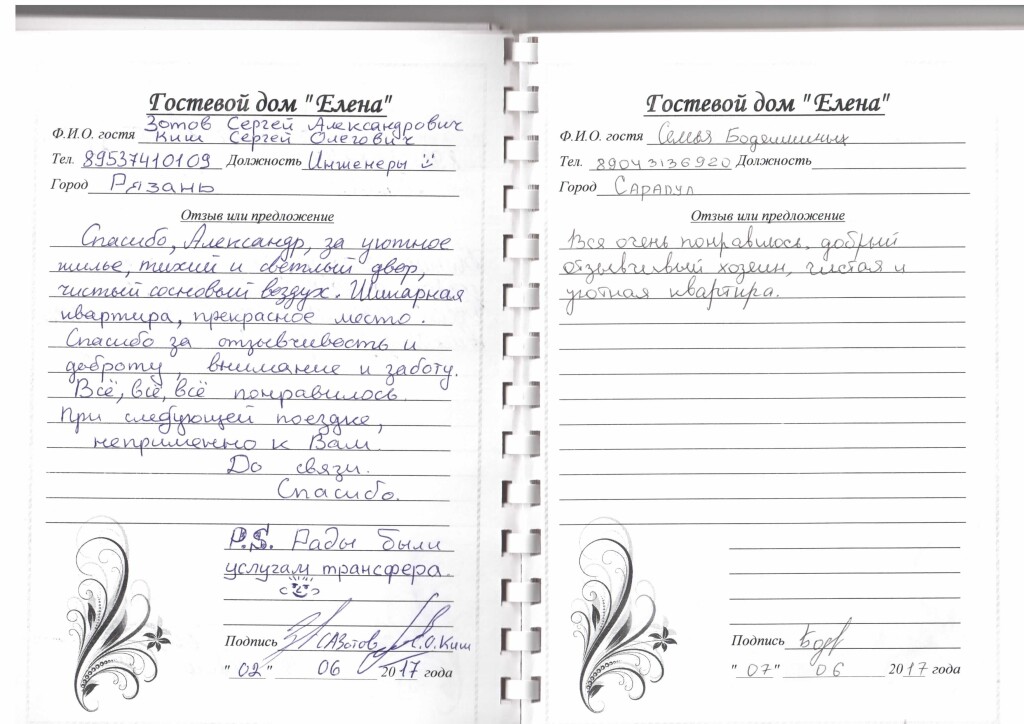 Гостевой дом "Елена"
Ф.И.О. гостя Зотов Сергей Александрович
Киш Сергей Олегович
Тел. 89537410109 Должность Инженеры
Город Рязань
Отзыв или предложение
Спасибо, Александр, за уютное
жилье, тихий и светлый двор,
чистый сосновый воздух. Шикарная
квартира, прекрасное место.
Спасибо за отзывчивость и
доброту, внимание и заботу.
Всё, всё, всё понравилось.
При следующей поездке,
неприменно к Вам.
До связи.
Спасибо.
P.S. Рады были
услугам трансфера.
Подпись САЗотов С.О.Киш
"02" 06 2017 года
Гостевой дом "Елена"
Ф.И.О. гостя Семья
Тел. 89043136920 Должность
Город Сарапул
Отзыв или предложение
Вся очень понравилось. добрый
отзывчивый хозеин, чистая и
уютная квартира.
Подпись
"07" 06 2017 года